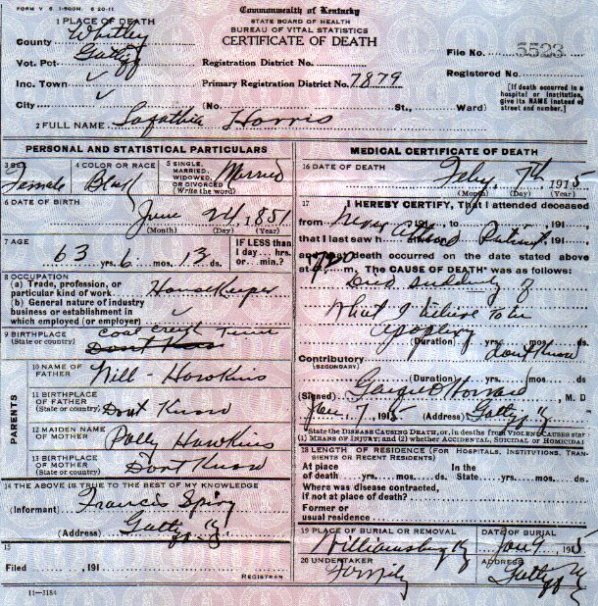 FORM V S 1-500M. 6 20-11
Commonwealth of Kentucky
STATE BOARD OF HEALTH
BUREAU OF VITAL STATISTICS
CERTIFICATE OF DEATH
1 PLACE OF DEATH
County Whitley
Vot. Pct.
Inc. Town
City (No. St., Ward)
Registration District No.
Primary Registration District No. 7879
File No. 5523
Registered No.
[If death occurred in a hospital or institution, give its NAME instead of street and number.]
2 FULL NAME Harris
PERSONAL AND STATISTICAL PARTICULARS
3 SEX Female
4 COLOR OR RACE Black
5 SINGLE, MARRIED, WIDOWED, OR DIVORCED (Write the word) Married
6 DATE OF BIRTH
June 24, 1851
(Month) (Day) (Year)
7 AGE
63 yrs. 6 mos. 13 ds.
IF LESS than 1 day — hrs. or — min.?
8 OCCUPATION
(a) Trade, profession, or particular kind of work HouseKeeper
(b) General nature of industry business or establishment in which employed (or employer)
9 BIRTHPLACE (State or country) Coal Creek Tenn
Dont Know
10 NAME OF FATHER Will - Hawkins
PARENTS
11 BIRTHPLACE OF FATHER (State or country) Dont Know
12 MAIDEN NAME OF MOTHER Polly Hawkins
13 BIRTHPLACE OF MOTHER (State or country) Dont Know
14 THE ABOVE IS TRUE TO THE BEST OF MY KNOWLEDGE
(Informant) Francis
(Address) Ky
15
Filed , 191
REGISTRAR
11—3184
MEDICAL CERTIFICATE OF DEATH
16 DATE OF DEATH
7th, 1915
(Month) (Day) (Year)
17 I HEREBY CERTIFY, That I attended deceased
from Never , 191 , to , 191 ,
that I last saw h Patient , 191 ,
and that death occurred on the date stated above
at m. The CAUSE OF DEATH* was as follows:
Died suddenly of
what I believe to be
apoplexy
(Duration) yrs. mos. ds.
Contributory dont Know
(SECONDARY)
(Duration) yrs. mos. ds
(Signed) George , M. D
Jan, 7, 1915 (Address) Ky
*State the DISEASE CAUSING DEATH, or, in deaths from VIOLENT CAUSES state (1) MEANS OF INJURY; and (2) whether ACCIDENTAL, SUICIDAL OR HOMICIDAL
18 LENGTH OF RESIDENCE (FOR HOSPITALS, INSTITUTIONS, TRANSIENTS OR RECENT RESIDENTS)
At place of death yrs. mos. ds. In the State yrs. mos. ds.
Where was disease contracted, if not at place of death?
Former or usual residence
19 PLACE OF BURIAL OR REMOVAL Williamsburg Ky
DATE OF BURIAL Jan 9, 1915
20 UNDERTAKER Family
ADDRESS Ky